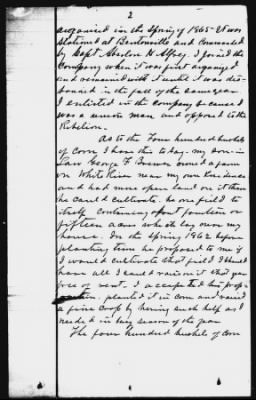 2
organised in the Spring of 1865 - It was
stationed at Bentonville and Commanded
by Capt H. Alfrey. I joined the
Company when it was first organized
and remained with it until it was dis-
banded in the fall of the same year.
I enlisted in the company because I
was a union man and opposed to the
Rebelion.
As to the Four hundred bushels
of Corn I have this to say. my son-in
Law George F. owned a farm
on White River near my own Residence
and had more open land on it than
he could cultivate. he one field to
itself containing about fourteen or
fifteen acres which lay over my
house. In the Spring 1862 before
planting time he proposed to me if
I would cultivate that field I should
have all I could raise on it that year
free of rent. I accepted his prop-
osition. planted it in corn and raised
a fine crop by hiring such help as I
needed in busy season of the year
The four hundred bushels of corn